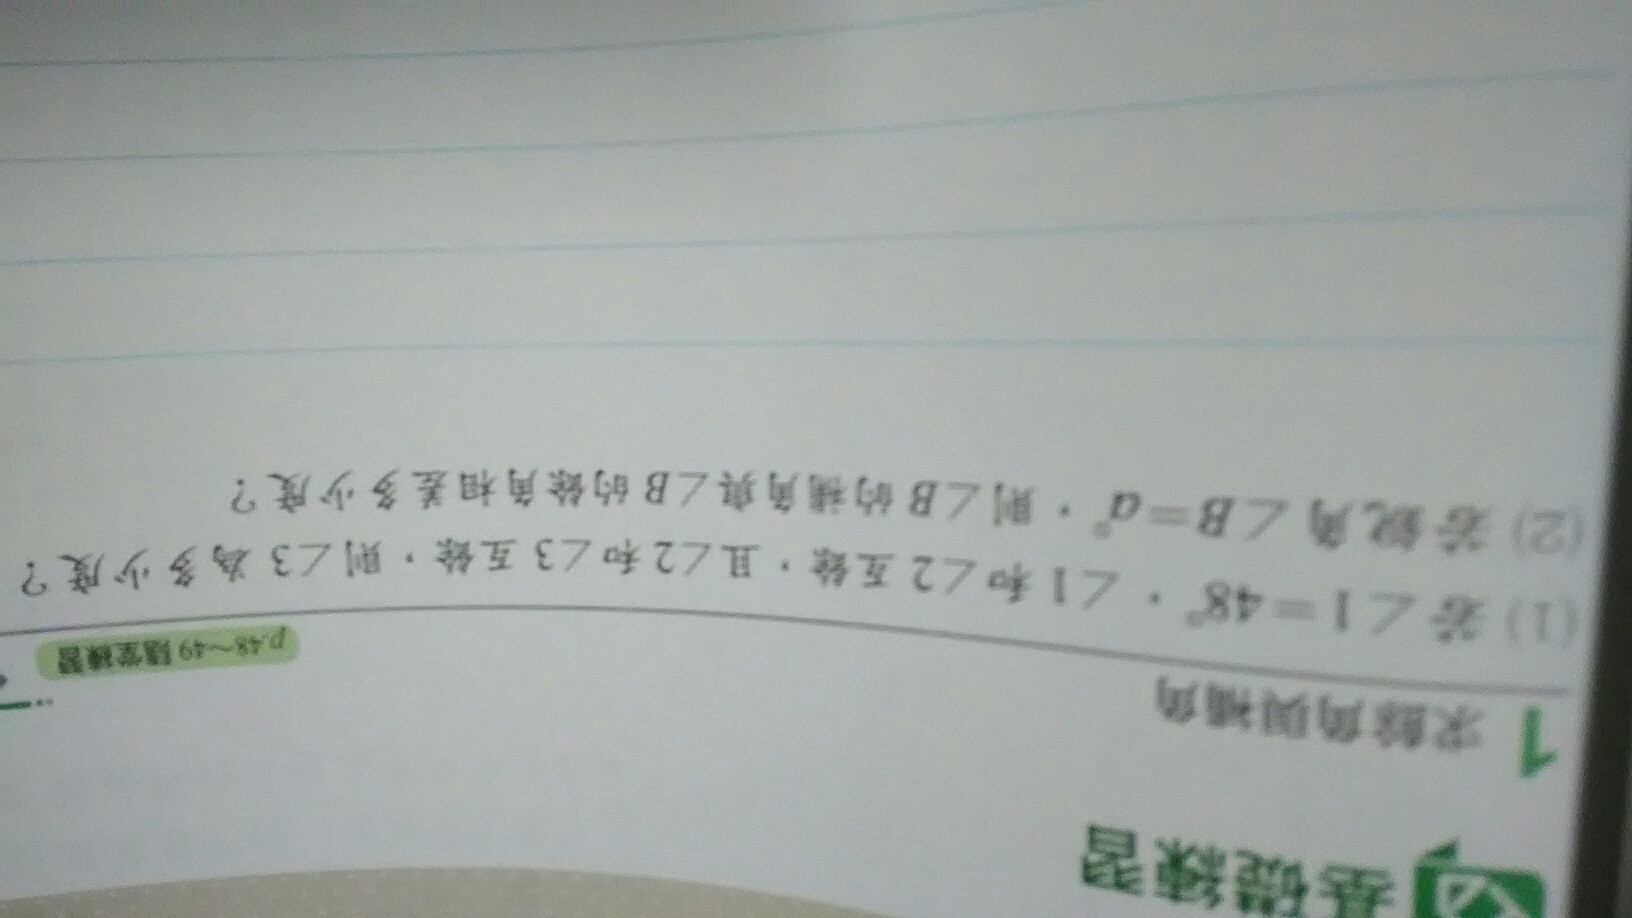 基礎練習
1 求餘角與補角
p.48～49 隨堂練習
(1) 若∠1=48°，∠1和∠2互餘，且∠2和∠3互餘，則∠3為多少度？
(2) 若銳角∠B=a°，則∠B的補角與∠B的餘角相差多少度？